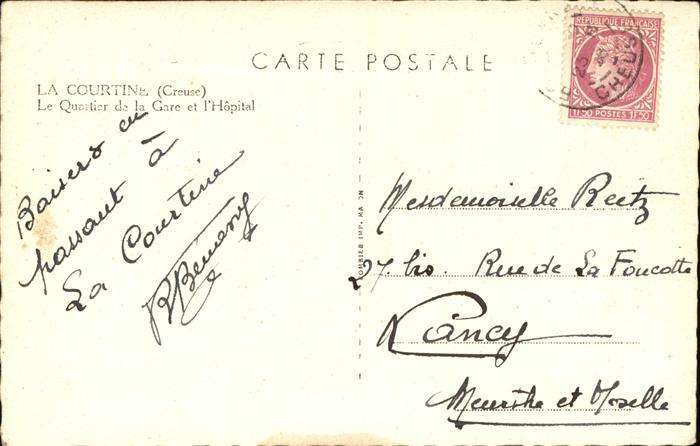 CARTE POSTALE
LA COURTINE (Creuse)
Le Quartier de la Gare et l'Hôpital
RÉPUBLIQUE FRANÇAISE
1F50 POSTES 1F50
Baisers en
passant à
La Courtine
Mesdemoiselle Reitz
27 bis. Rue de La Foucotte
Nancy
Meurthe et Moselle